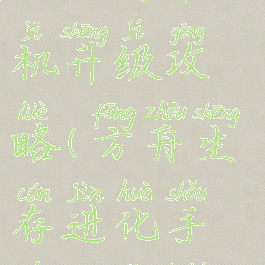 jī shēng jí gōng
机升级攻
lüè fāng zhōu shēng
略(方舟生
cún jìn huà shǒu
存进化手